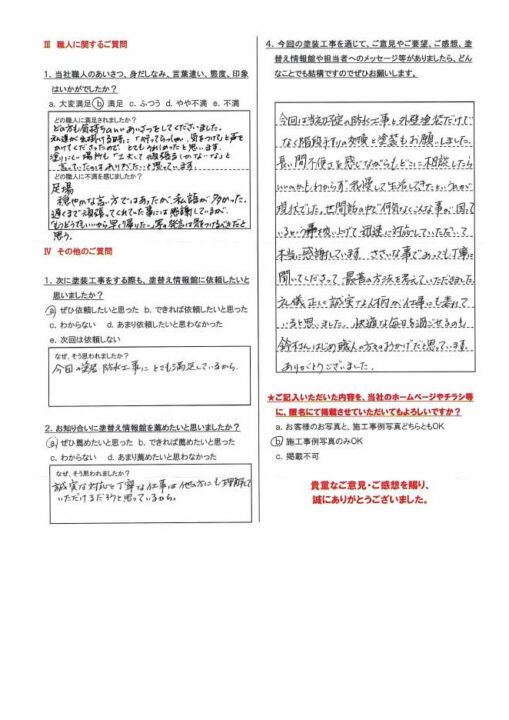 Ⅲ 職人に関するご質問
1. 当社職人のあいさつ、身だしなみ、言葉遣い、態度、印象
はいかがでしたか？
a. 大変満足 b. 満足 c. ふつう d. やや不満 e. 不満
どの職人に満足されましたか？
どの方も気持ちのいいあいさつをしてくださいました。
私達が出掛ける時に「行ってらっしゃい、気をつけて」と声を
かけてくださったので、とてもうれしかったと思います。
塗りにくい場所も「工夫して頑張るしかないな」と
言っていたのはありがたいと思っています。
どの職人に不満を感じましたか？
足場
穏やかな言い方ではあったが私語が多かった。
遅くまで頑張ってくれていた事には感謝しているが、
「もうどうでもいいから早く帰りたい」等の発言は気をつけるべきだと
思う。
Ⅳ その他のご質問
1. 次に塗装工事をする際も、塗替え情報館に依頼したいと
思いましたか？
a. ぜひ依頼したいと思った b. できれば依頼したいと思った
c. わからない d. あまり依頼したいと思わなかった
e. 次回は依頼しない
なぜ、そう思われましたか？
今回の塗装、防水工事にとても満足しているから。
2. お知り合いに塗替え情報館を薦めたいと思いましたか？
a. ぜひ薦めたいと思った b. できれば薦めたいと思った
c. わからない d. あまり薦めたいと思わなかった
なぜ、そう思われましたか？
誠実な対応と丁寧な仕事は他の方にも理解して
いただけるだろうと思っているから。
4. 今回の塗装工事を通じて、ご意見やご要望、ご感想、塗
替え情報館や担当者へのメッセージ等がありましたら、どん
なことでも結構ですのでぜひお願いします。
今回は当初予定の防水工事と外壁塗装だけで
なく階段手すりの交換と塗装もお願いしました。
長い間不便さを感じながらもどこに相談したら
いいのかもわからず我慢して生活してきたというのが
現状でした。世間話の中で何気なくこんな事が困って
いるという事を取り上げて迅速に対応していただいて
本当に感謝しています。ささいな事であっても丁寧に
聞いてくださって、最善の方法を考えていただきました。
礼儀正しく誠実な人柄が仕事にも表れて
いると思いました。快適な毎日を過ごせるのも
鈴木さんはじめ職人の方々のおかげだと思っています。
ありがとうございました。
★ご記入いただいた内容を、当社のホームページやチラシ等
に、匿名にて掲載させていただいてもよろしいですか？
a. お客様のお写真と、施工事例写真どちらともOK
b. 施工事例写真のみOK
c. 掲載不可
貴重なご意見・ご感想を賜り、
誠にありがとうございました。